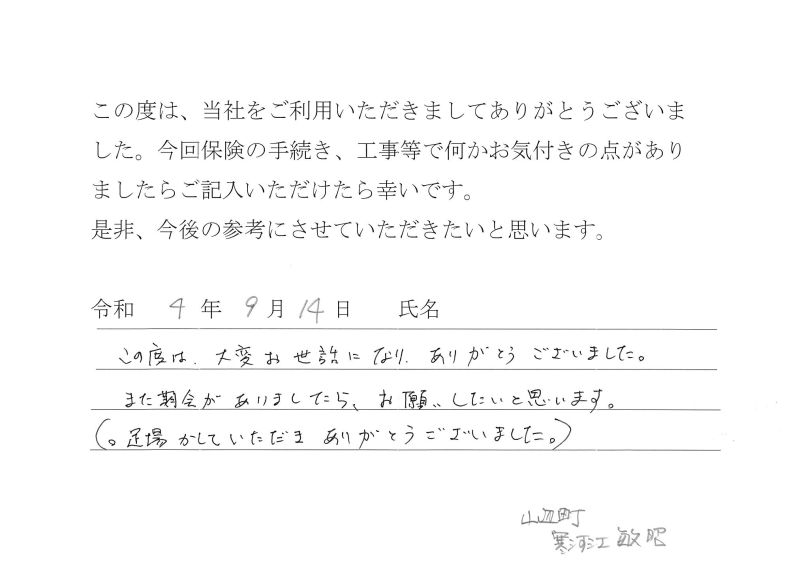 この度は、当社をご利用いただきましてありがとうございま
した。今回保険の手続き、工事等で何かお気付きの点があり
ましたらご記入いただけたら幸いです。
是非、今後の参考にさせていただきたいと思います。
令和 4 年 9 月 14 日 氏名
この度は、大変お世話になり、ありがとうございました。
また期会がありましたら、お願いしたいと思います。
(。足場かしていただき ありがとうございました。)
山皿町
寒河江 敏昭